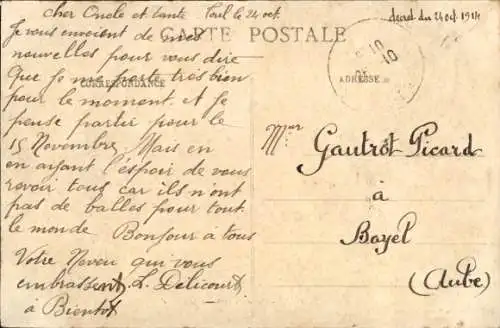 cher Oncle et tante
Toul le 24 oct.
decret du 24 oct 1914
CARTE POSTALE
Je vous envoient de mes
nouvelles pour vous dire
Que je me porte très bien
pour le moment. et Je
pense partir pour le
15 Novembre, Mais en
en ayant l'espoir de vous
revoir tous car ils n'ont
pas de balles pour tout
le monde Bonjour à tous
Votre Neveu qui vous
embrassent, L. Delicourt
à Bientot
CORRESPONDANCE
ADRESSE
10
10
Mr
Gautrot Picard
à
Bayel
(Aube)